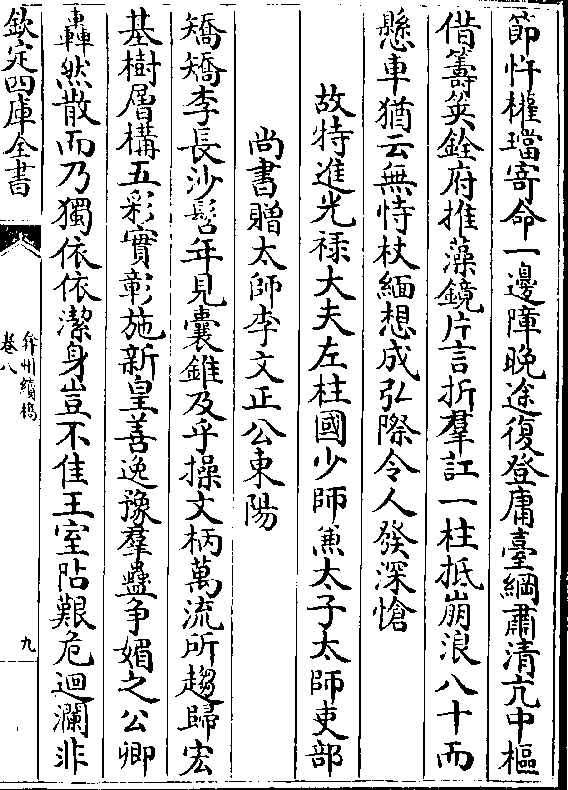 節忤權璫寄命一邊障晚途復登庸臺綱肅清亢中樞
借籌筴銓府推藻鏡片言折羣訌一柱抵崩浪八十而
懸車猶云無恃杖緬想成弘際令人發深愴
故特進光祿大夫左柱國少師兼太子太師吏部
尚書贈太師李文正公東陽
矯矯李長沙髫年見囊錐及乎操文柄萬流所趨歸宏
基樹層構五彩實彰施新皇善逸豫羣蠱争媚之公卿
轟然散而乃獨依依潔身豈不佳王室阽艱危迴瀾非
欽定四庫全書
弇州續稿
卷八
九